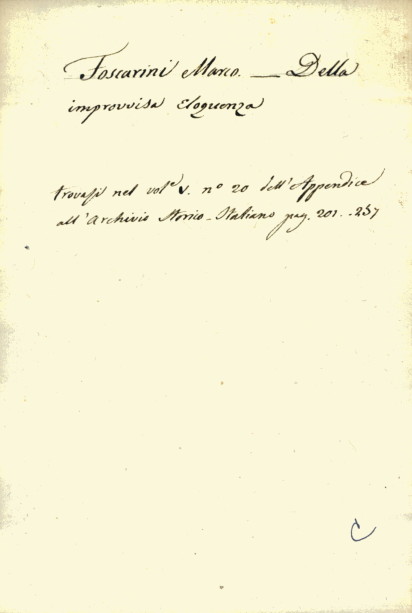 Foscarini Marco. — Della
improvvisa Eloquenza
trovasi nel vol.e V. nº 20 dell'Appendice
all'Archivio Storico-Italiano pag. 201.-257
C